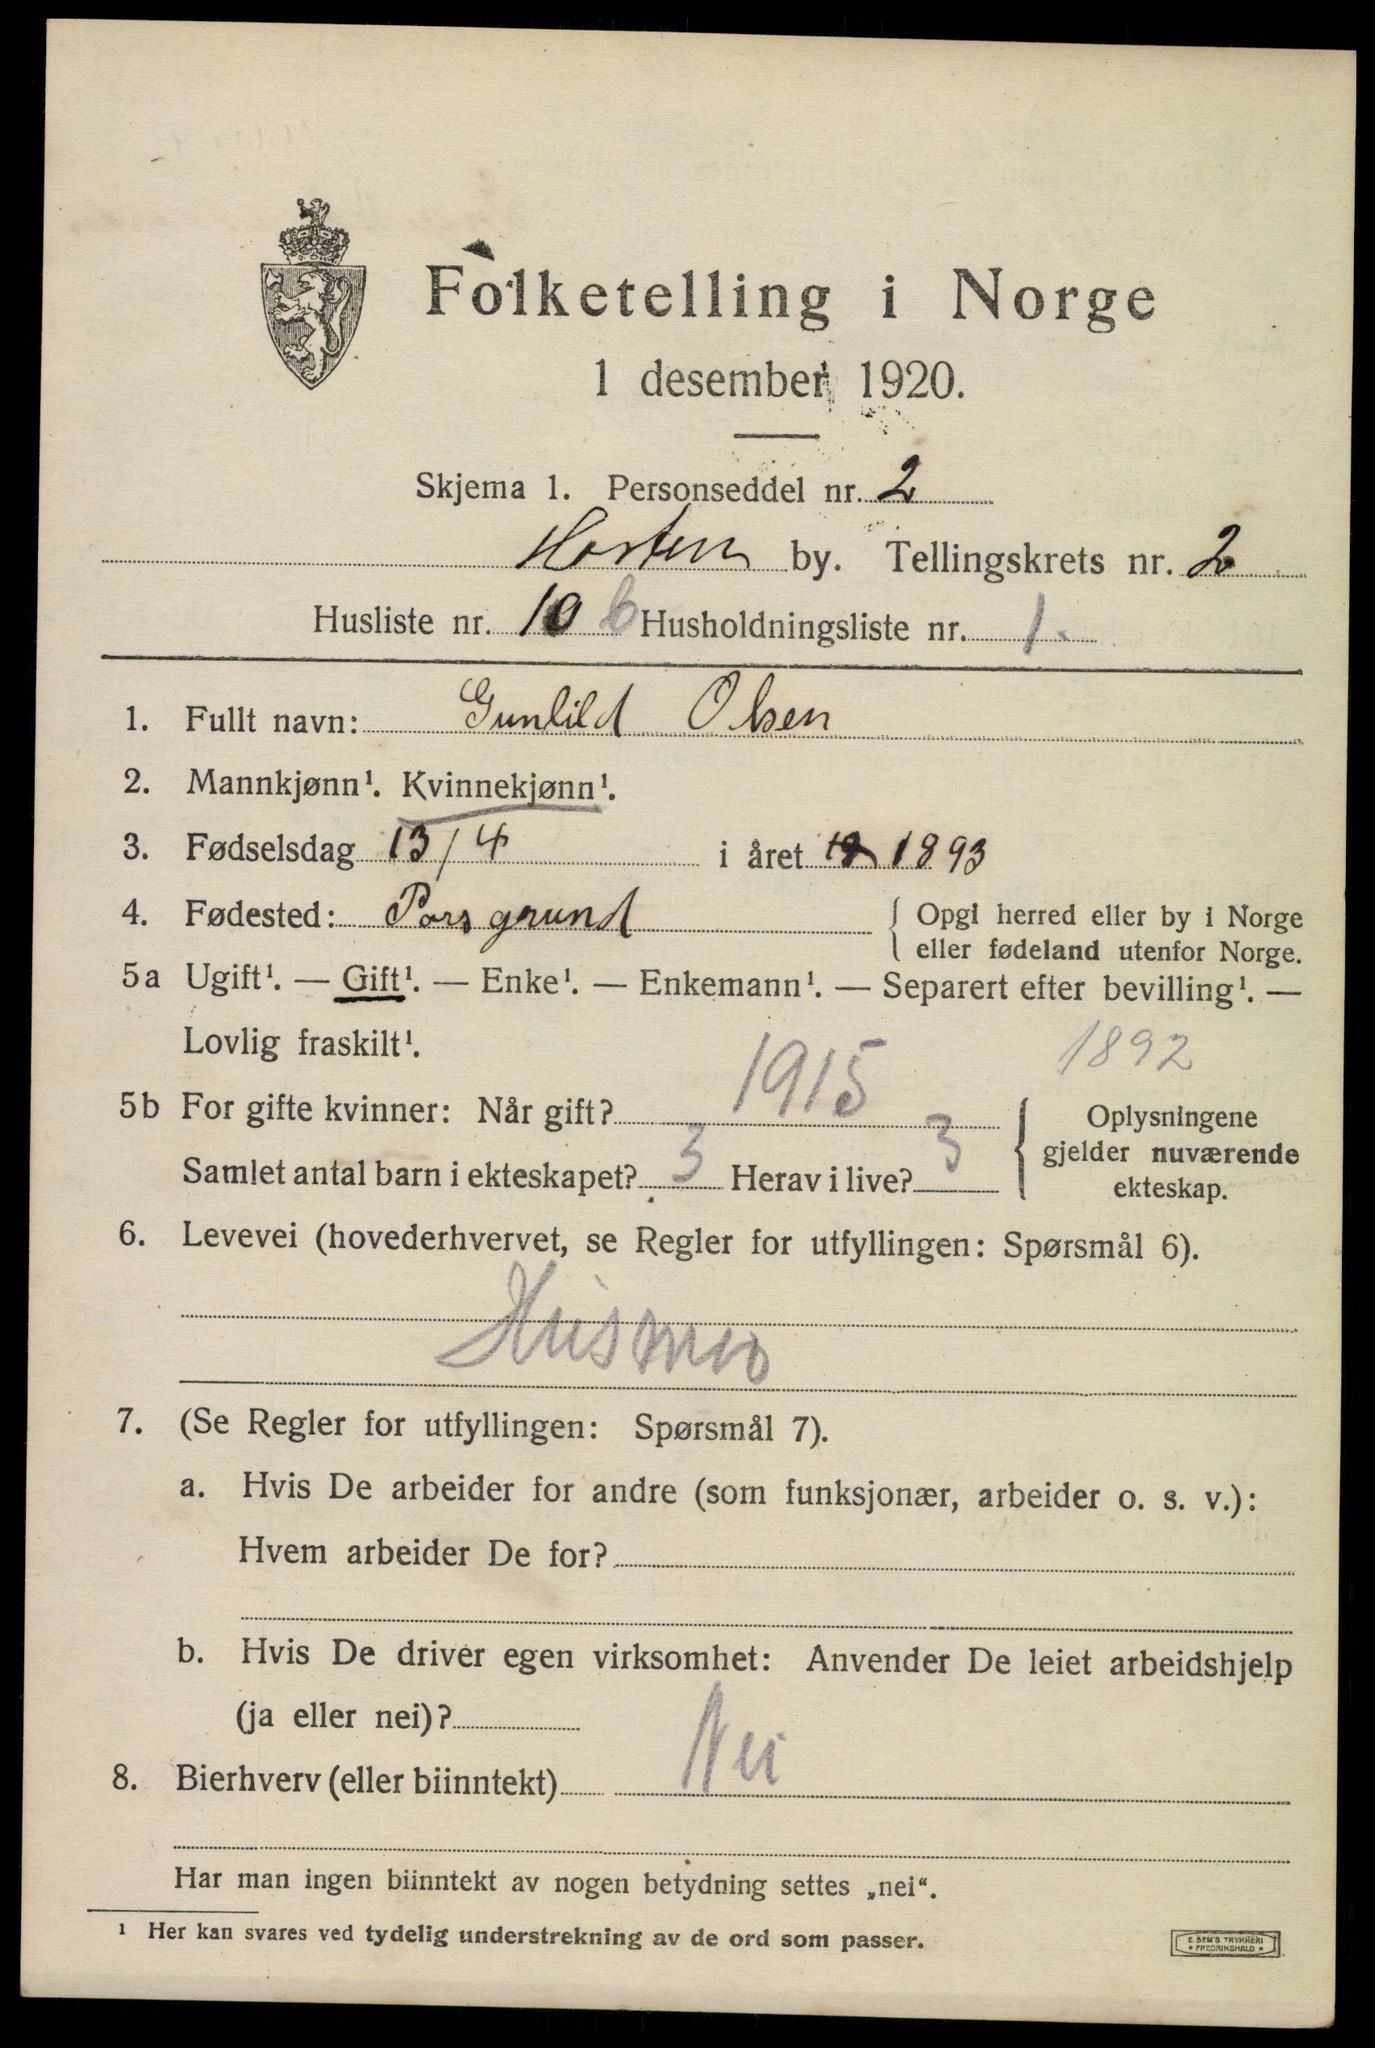 Folketelling i Norge
1 desember 1920.
Skjema 1. Personseddel nr. 2
Horten by. Tellingskrets nr. 2
Husliste nr. 10 b Husholdningsliste nr. 1.
1. Fullt navn: Gunhild Olsen
2. Mannkjønn¹. Kvinnekjønn¹.
3. Fødselsdag 13/4 i året 1893
4. Fødested: Porsgrund { Opgi herred eller by i Norge
eller fødeland utenfor Norge.
5a Ugift¹. — Gift¹. — Enke¹. — Enkemann¹. — Separert efter bevilling¹. —
Lovlig fraskilt¹.
1892
5b For gifte kvinner: Når gift? 1915 { Oplysningene
gjelder nuværende
ekteskap.
Samlet antal barn i ekteskapet? 3 Herav i live? 3
6. Levevei (hovederhvervet, se Regler for utfyllingen: Spørsmål 6).
Husmor
7. (Se Regler for utfyllingen: Spørsmål 7).
a. Hvis De arbeider for andre (som funksjonær, arbeider o. s. v.):
Hvem arbeider De for?
b. Hvis De driver egen virksomhet: Anvender De leiet arbeidshjelp
(ja eller nei)?
8. Bierhverv (eller biinntekt) Nei
Har man ingen biinntekt av nogen betydning settes „nei“.
¹ Her kan svares ved tydelig understrekning av de ord som passer.
E. SEM'S TRYKKERI
* FREDRIKSHALD *